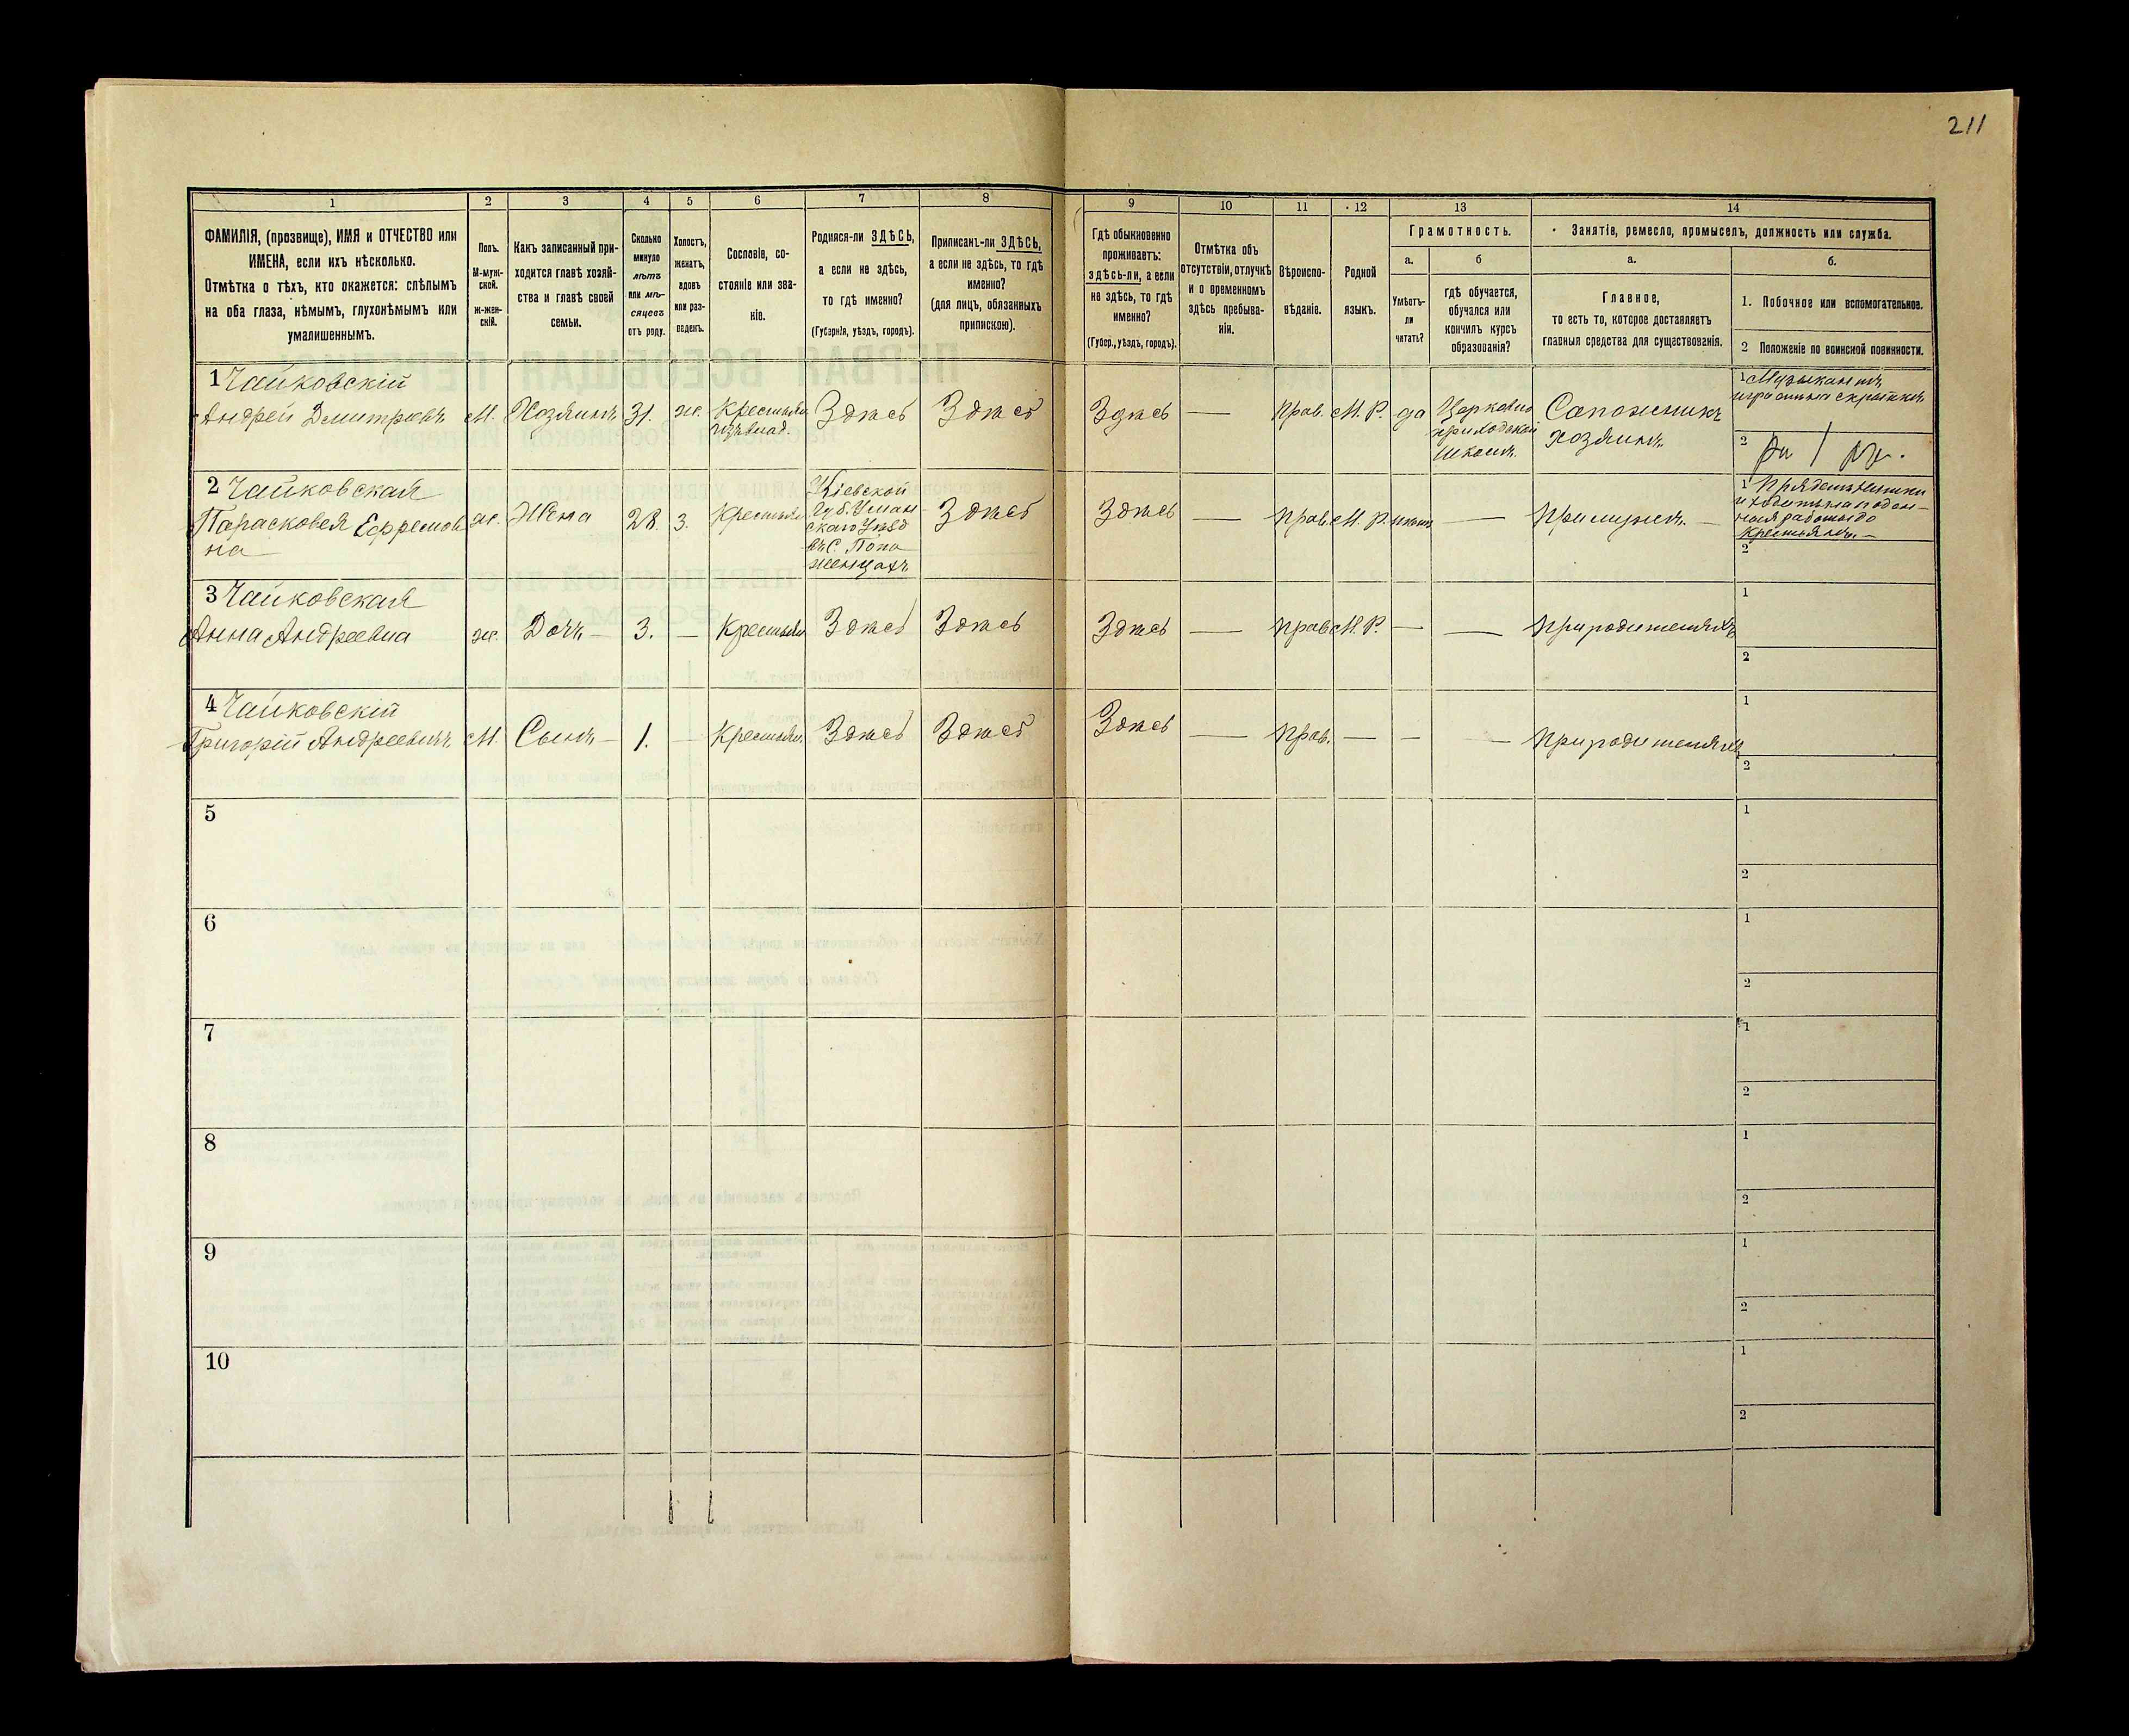 211
1
2
3
4
5
6
7
8
9
10
11
12
13
14
ФАМИЛІЯ, (прозвище), ИМЯ и ОТЧЕСТВО или
ИМЕНА, если ихъ нѣсколько.
Отмѣтка о тѣхъ, кто окажется: слѣпымъ
на оба глаза, нѣмымъ, глухонѣмымъ или
умалишеннымъ.
Полъ.
М-муж-
ской.
ж-жен-
скій.
Какъ записанный при-
ходится главѣ хозяй-
ства и главѣ своей
семьи.
Сколько
минуло
лѣтъ
или мѣ-
сяцевъ
отъ роду.
Холостъ,
женатъ,
вдовъ
или раз-
веденъ.
Сословіе, со-
стояніе или зва-
ніе.
Родился-ли ЗДѢСЬ,
а если не здѣсь,
то гдѣ именно?
(Губернія, уѣздъ, городъ).
Приписанъ-ли ЗДѢСЬ,
а если не здѣсь, то гдѣ
именно?
(для лицъ, обязанныхъ
припискою).
Гдѣ обыкновенно
проживаетъ:
здѣсь-ли, а если
не здѣсь, то гдѣ
именно?
(Губер., уѣздъ, городъ).
Отмѣтка объ
отсутствіи, отлучкѣ
и о временномъ
здѣсь пребыва-
ніи.
Вѣроиспо-
вѣданіе.
Родной
языкъ.
Грамотность.
а.
Умѣетъ-
ли
читать?
б
гдѣ обучается,
обучался или
кончилъ курсъ
образованія?
Занятіе, ремесло, промыселъ, должность или служба.
а.
Главное,
то есть то, которое доставляетъ
главныя средства для существованія.
б.
1. Побочное или вспомогательное.
2 Положеніе по воинской повинности.
1 Чайковскій
Андрей Дмитровъ
М.
Хозяинъ
31.
ж.
Крестьян.
изъ влад.
Здѣсь
Здѣсь
Здѣсь
—
прав.
М. Р.
да
Церковно
приходской
школѣ.
Сапожникъ
хозяинъ.
1 Музыкантъ
2
2 Чайковская
Парасковея Ефремов
на
ж.
Жена
28.
3.
Крестьян
Кіевской
Губ. Уман
скаго Уѣзд
въ С. Попо
женцахъ
Здѣсь
Здѣсь
—
прав.
М. Р.
—
При мужѣ. —
1
2
3 Чайковская
Анна Андреевна
ж.
Дочь —
3.
—
Крестьян
Здѣсь
Здѣсь
Здѣсь
—
прав
М. Р.
—
—
При родителяхъ
1
2
4 Чайковскій
Григорій Андреевичъ
М.
Сынъ —
1.
—
Крестьян.
Здѣсь
Здѣсь
Здѣсь
—
прав.
—
—
—
При родителяхъ
1
2
5
1
2
6
1
2
7
1
2
8
1
2
9
1
2
10
1
2